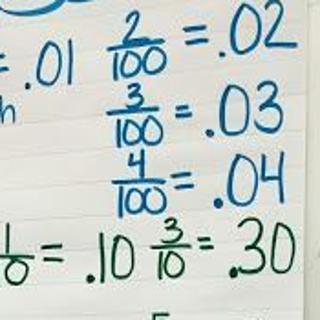 = .01 2/100 = .02
h 3/100 = .03
4/100 = .04
1/0 = .10 3/10 = .30